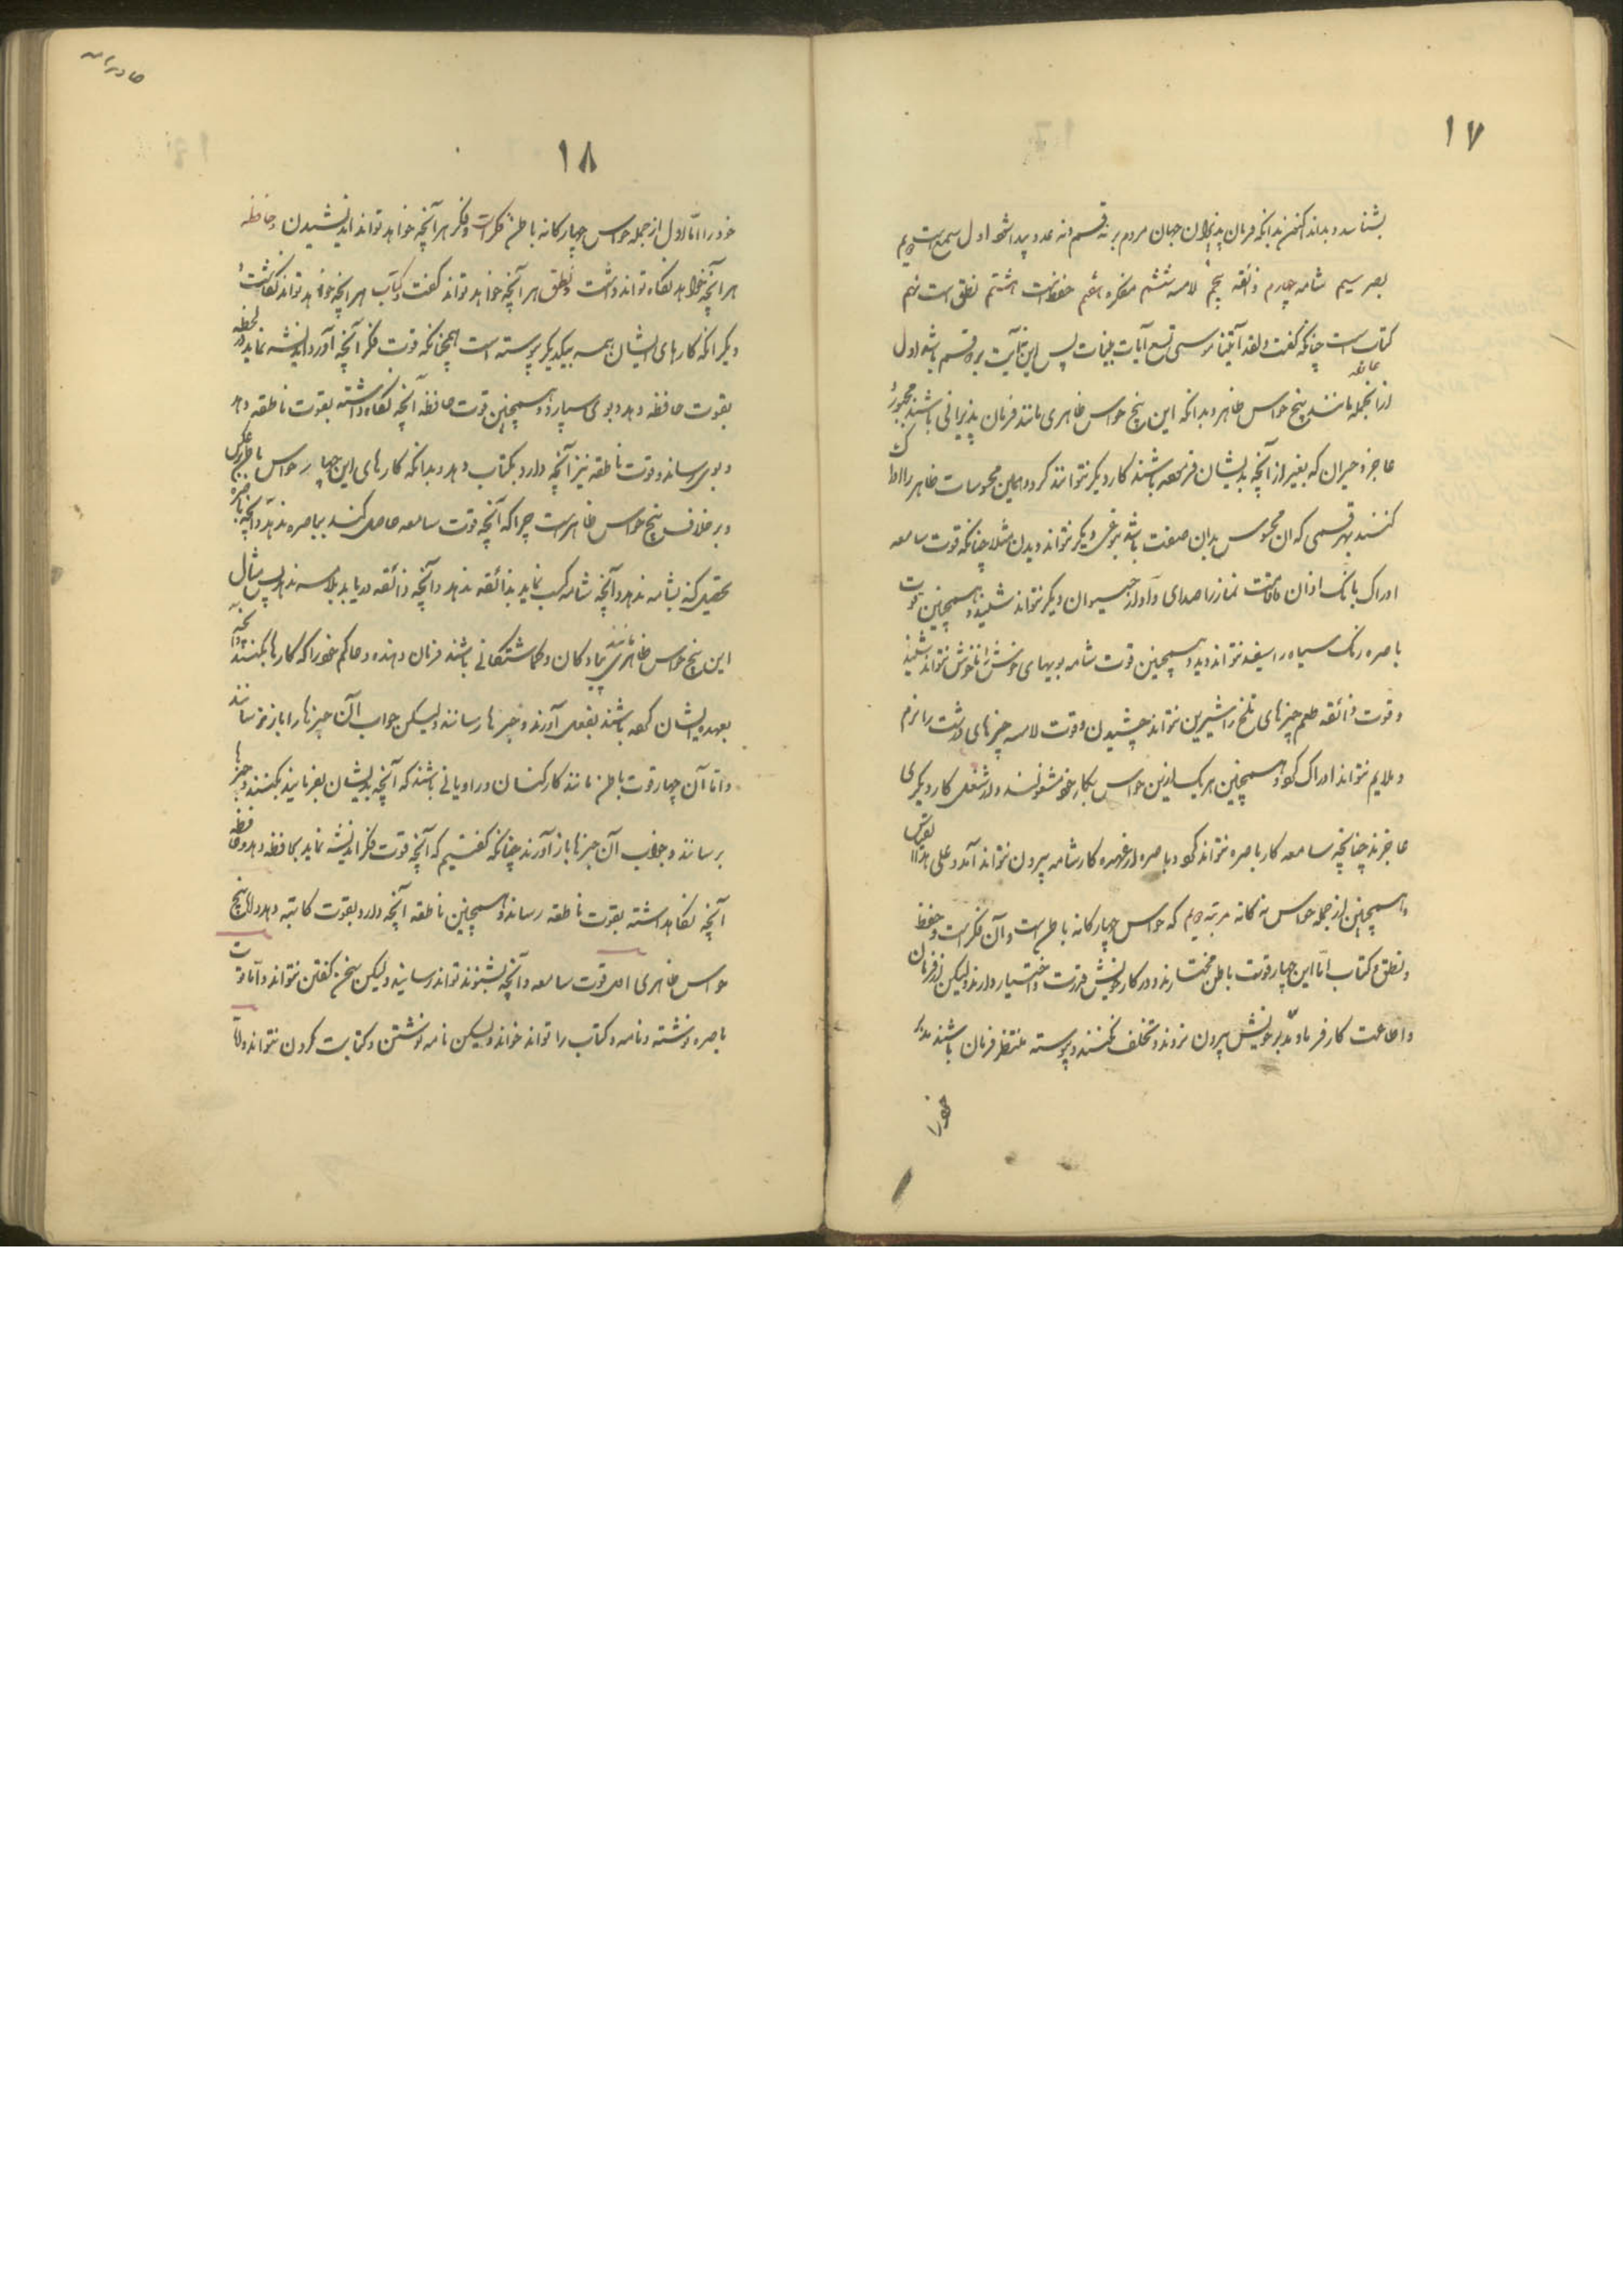 ۱۷
بشناسد و بداند اکنون بدانکه فرمان پذیران جهان مردم بر نه قسم و نه عدد پیدا شود اول سمع است دویم
بصر سیم شامه چهارم ذائقه پنجم لامسه ششم مفکره هفتم حفظ است هشتم نطق است نهم
کتابست چنانکه گفت ولقد آتینا موسی تسع آیات بینات پس این نه آیت بر دو قسم باشد اول
از آنجمله مانند پنج حواس ظاهر و بدانکه این پنج حواس ظاهری مانند فرمان پذیرانی باشند مجبور
عاجز و حیران که بغیر از آنچه بدیشان فرموده باشند کار دیگر نتوانند کرد و همین محسوسات ظاهر را ادراک
کنند بهر قسمی که آن محسوس بدان صفت باشد بنوعی دیگر نتواند دیدن مثلا چنانکه قوت سامعه
ادراک بانک اذان و اقامت نماز را صدای و آواز حیوان دیگر نتواند شنید و همچنین قوت
باصره رنک سیاه را سفید نتواند دید و همچنین قوت شامه بویهای خوش را ناخوش نتواند شنید
و قوت ذائقه طعم چیزهای تلخ را شیرین نتواند چشیدن و قوت لامسه چیزهای درشت را نرم
و ملایم نتواند ادراک کرد و همچنین هر یک ازین حواس بکار خود مشغولند و از شغل کار دیگری
عاجزند چنانچه سامعه کار باصره نتواند کرد و باصره از عهده کار شامه بیرون نتواند آمد و علی هذا القیاس
و همچنین از جمله حواس نه کانه مرتبه دویم که حواس چهار کانه باطن است و آن فکر است و حفظ
و نطق و کتاب اما این چهار قوت باطن مختارند و در کار خویش قدرت و اختیار دارند ولیکن از فرمان
و اطاعت کارفرما و مدبر خویش بیرون نروند و تخلف نکنند و پیوسته منتظر فرمان باشند مدبر
خود را
۱۸
خود را اما اول از جمله حواس چهار کانه باطن فکر است و فکر هر آنچه خواهد تواند اندیشیدن و حافظه
هر آنچه خواهد نکاه تواند داشت و نطق هر آنچه خواهد تواند گفت و کتاب هر آنچه خواهد تواند نکاشت و
دیکر آنکه کارهای ایشان همه بیکدیکر پیوسته است همچنانکه قوت فکر آنچه آورد و اندیشه نماید در لحظه
بقوت حافظه دهد و بوی سپارد و همچنین قوت حافظه آنچه نکاه داشته بقوت ناطقه دهد
و بوی رساند و قوت ناطقه نیز آنچه دارد بکتاب دهد و بدانکه کارهای این چهار حواس باطن بر عکس
و بر خلاف پنج حواس ظاهرست چرا که آنچه قوت سامعه حاصل کند بباصره ندهد و آنچه باصره
تحصیل کند بشامه ندهد و آنچه شامه کسب نماید بذائقه ندهد و آنچه ذائقه دریابد بلامسه ندهد پس مثال
این پنج حواس ظاهری مانند پیادکان و کماشتکانی باشند فرمان دهنده و حاکم خود را که کارها بکنند و آنچه
بعهده ایشان کرده باشند بفعل آورند و خبرها رسانند ولیکن جواب آن خبرها را باز نرسانند
و اما آن چهار قوت باطن مانند کارکنان و راویانی باشند که آنچه بدیشان بفرمایند بکنند و خبرها
برسانند و جواب آن خبرها باز آورند چنانکه گفتیم که آنچه قوت فکر اندیشه نماید بحافظه دهد و حافظه
آنچه نکاهداشته بقوت ناطقه رساند و همچنین ناطقه آنچه دارد بقوت کاتبه دهد و اما پنج
حواس ظاهری اول قوت سامعه و آنچه بشنود تواند رسانید ولیکن سخن گفتن نتواند و اما قوت
باصره نوشته و نامه و کتاب را تواند خواند ولیکن نامه نوشتن و کتابت کردن نتواند و اما